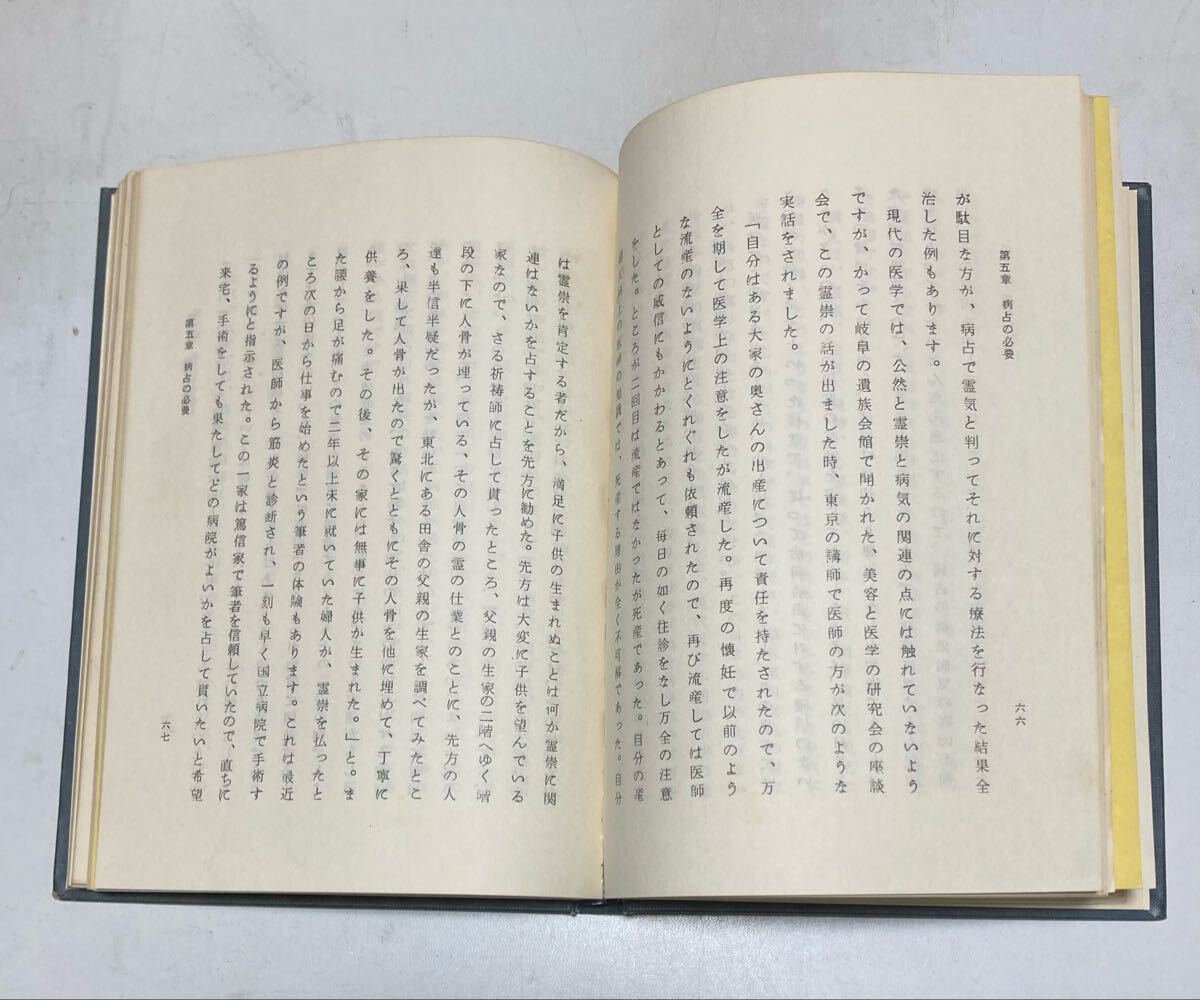 第五章　病占の必要
六六
が駄目な方が、病占で霊気と判ってそれに対する療法を行なった結果全
治した例もあります。
現代の医学では、公然と霊祟と病気の関連の点には触れていないよう
ですが、かって岐阜の遺族会館で開かれた、美容と医学の研究会の座談
会で、この霊祟の話が出ました時、東京の講師で医師の方が次のような
実話をされました。
「自分はある大家の奥さんの出産について責任を持たされたので、万
全を期して医学上の注意をしたが流産した。再度の懐妊で以前のよう
な流産のないようにとくれぐれも依頼されたので、再び流産しては医師
としての威信にもかかわるとあって、毎日の如く往診をなし万全の注意
をした。ところが二回目は流産ではなかったが死産であった。自分の産
の知識では、死産する理由が全く不可解であった。自分
は霊祟を肯定する者だから、満足に子供の生まれぬことは何か霊祟に関
連はないかを占することを先方に勧めた。先方は大変に子供を望んでいる
家なので、さる祈祷師に占して貰ったところ、父親の生家の二階へゆく階
段の下に人骨が埋っている、その人骨の霊の仕業とのことに、先方の人
達も半信半疑だったが、東北にある田舎の父親の生家を調べてみたとこ
ろ、果して人骨が出たので驚くとともにその人骨を他に埋めて、丁寧に
供養をした。その後、その家には無事に子供が生まれた。」と。ま
た腰から足が痛むので二年以上床に就いていた婦人が、霊祟を払ったと
ころ次の日から仕事を始めたという筆者の体験もあります。これは最近
の例ですが、医師から筋炎と診断され、一刻も早く国立病院で手術す
るようにと指示された。この一家は篤信家で筆者を信頼していたので、直ちに
来宅、手術をしても果たしてどの病院がよいかを占して貰いたいと希望
第五章　病占の必要
六七